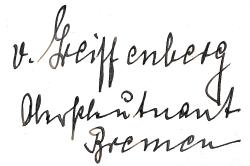 v. Greiffenberg
Oberstleutnant
Bremen